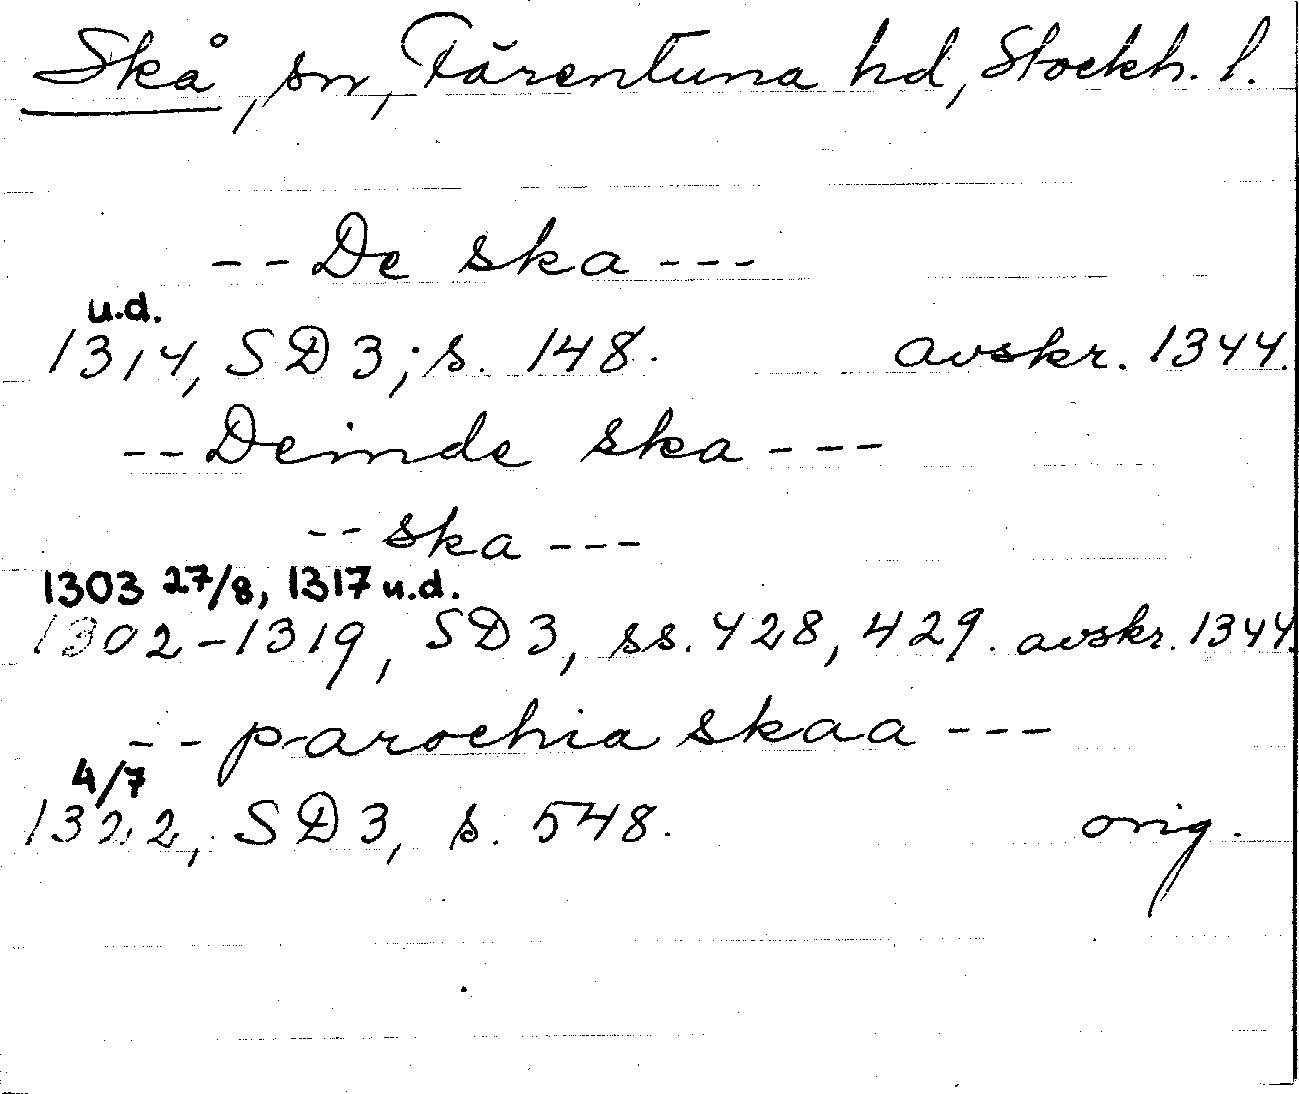 Skå, sn, Färentuna hd, Stockh. l.
-- De ska ---
u.d.
1314, SD 3; s. 148. avskr. 1344.
-- Deinde ska ---
-- ska ---
1303 27/8, 1317 u.d.
1302-1319, SD 3, ss. 428, 429. avskr. 1344.
-- parochia skaa ---
4/7
1322, SD 3, s. 548. orig.